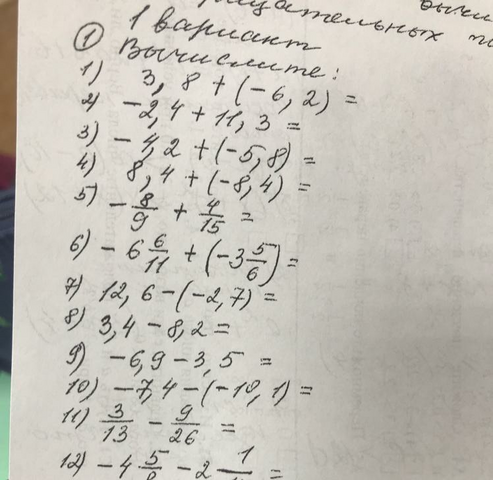 вычи
отрицательных
1 вариант
① Вычислите:
1) 3,8 + (-6,2) =
2) -2,4 + 11,3 =
3) -4,2 + (-5,8) =
4) 8,4 + (-8,4) =
5) -8/9 + 4/15 =
6) -6 6/11 + (-3 5/6) =
7) 12,6 - (-2,7) =
8) 3,4 - 8,2 =
9) -6,9 - 3,5 =
10) -7,4 - (-10,1) =
11) 3/13 - 9/26 =
12) -4 5/8 - 2 1/ =